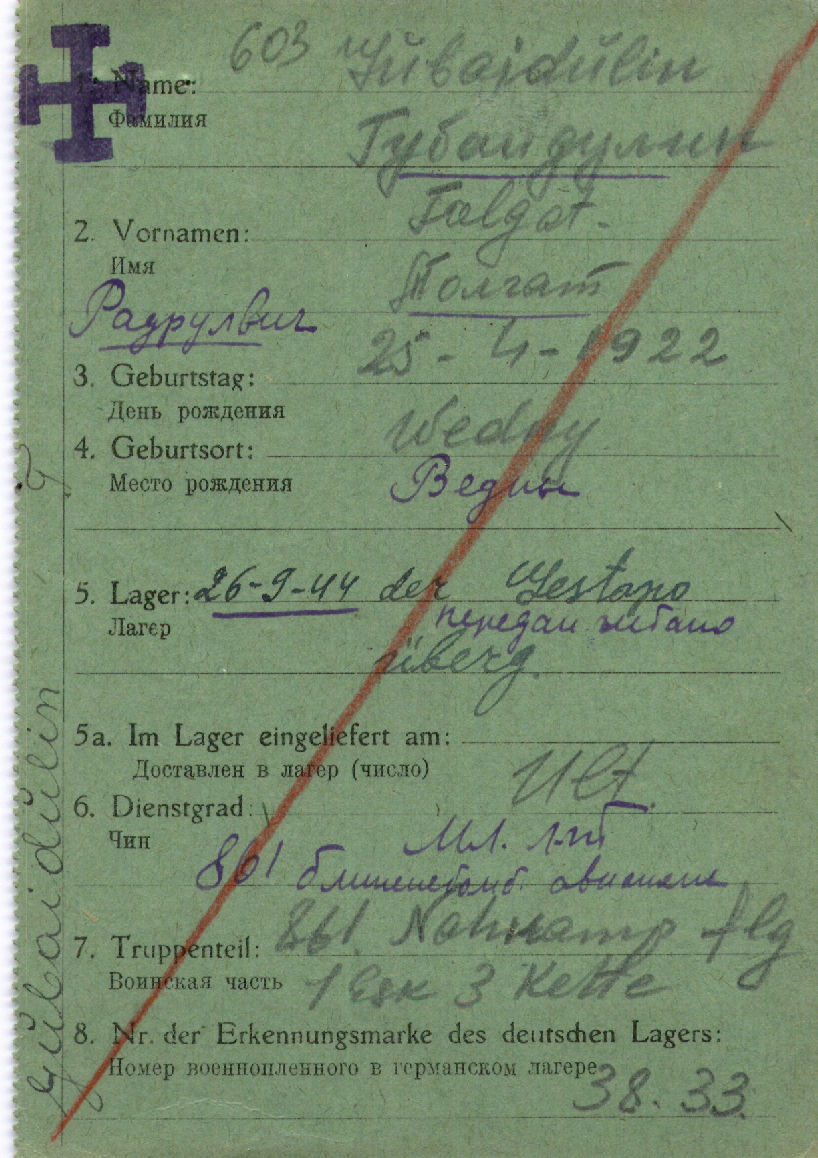 603 Gübajdülin
1. Name:
Фамилия
Губайдулин
Talgat.
2. Vornamen:
Имя
Толгат
25-4-1922
3. Geburtstag:
День рождения
Wedny
4. Geburtsort:
Место рождения
Ведны
5. Lager: 26-9-44 der Gestapo
Лагер передан гестапо
überg.
5a. Im Lager eingeliefert am:
Доставлен в лагер (число)
Ult.
6. Dienstgrad:
Чин Мл. л-т
861
7. Truppenteil: 861. Nahkamp flg
Воинская часть 1 Esk 3 Kette
8. Nr. der Erkennungsmarke des deutschen Lagers:
Номер военнопленного в германском лагере
38.33.
Gübaidülin